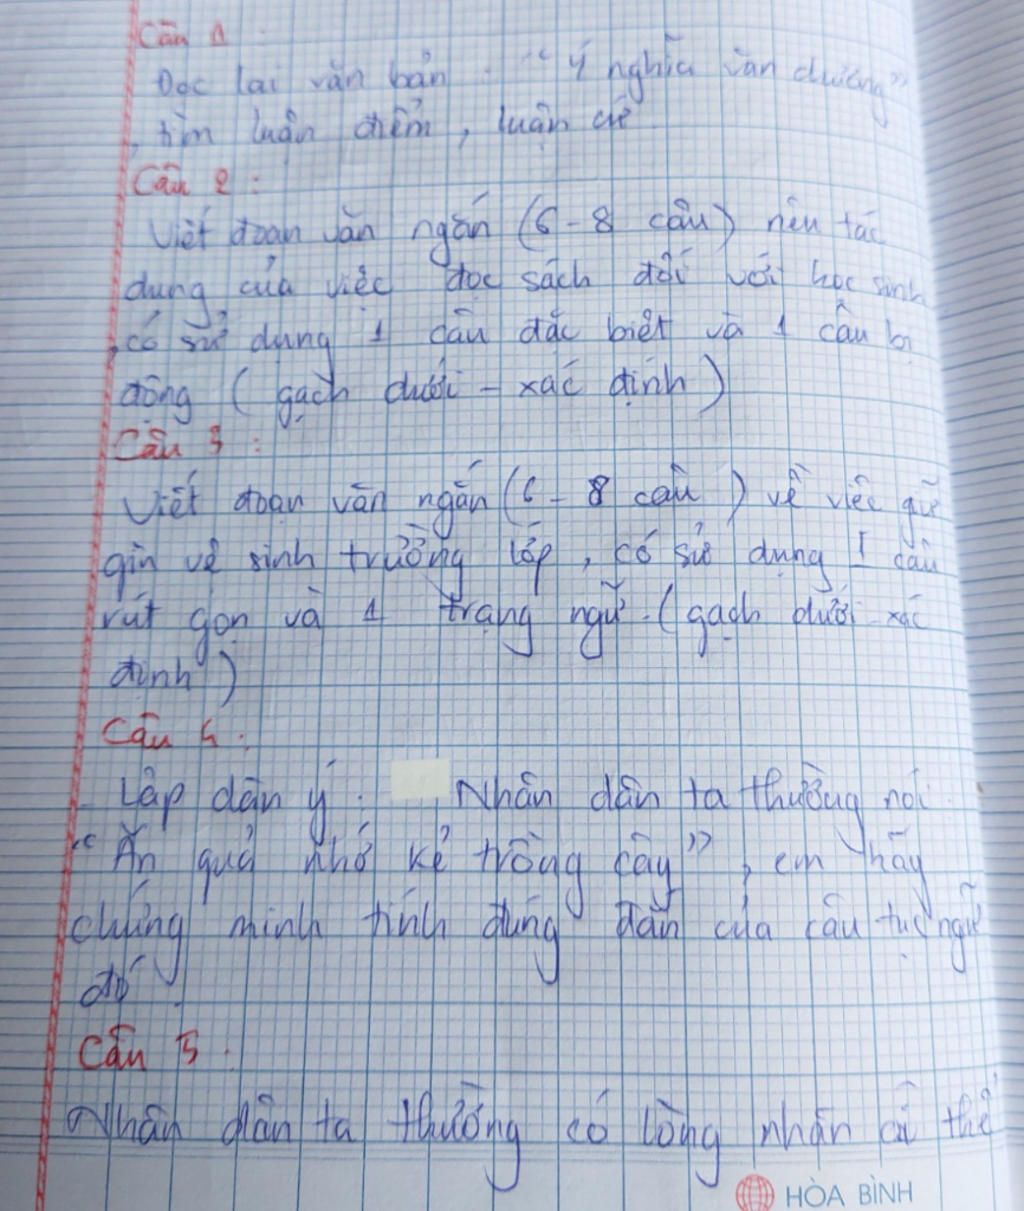 Câu 1 :
Đọc lại văn bản : "Ý nghĩa văn chương"
, tìm luận điểm, luận cứ
Câu 2 :
Viết đoạn văn ngắn (6 - 8 câu) nêu tác
dụng của việc đọc sách đối với học sinh
, có sử dụng 1 câu đặc biệt và 1 câu bị
động ( gạch dưới - xác định )
Câu 3 :
Viết đoạn văn ngắn (6 - 8 câu ) về việc giữ
gìn vệ sinh trường lớp , có sử dụng 1 câu
rút gọn và 1 trạng ngữ . ( gạch dưới - xác
định )
Câu 4 :
Lập dàn ý : Nhân dân ta thường nói :
"Ăn quả nhớ kẻ trồng cây" , em hãy
chứng minh tính đúng đắn của câu tục ngữ
đó .
Câu 5 :
Nhân dân ta thường có lòng nhẫn thể
HÒA BÌNH